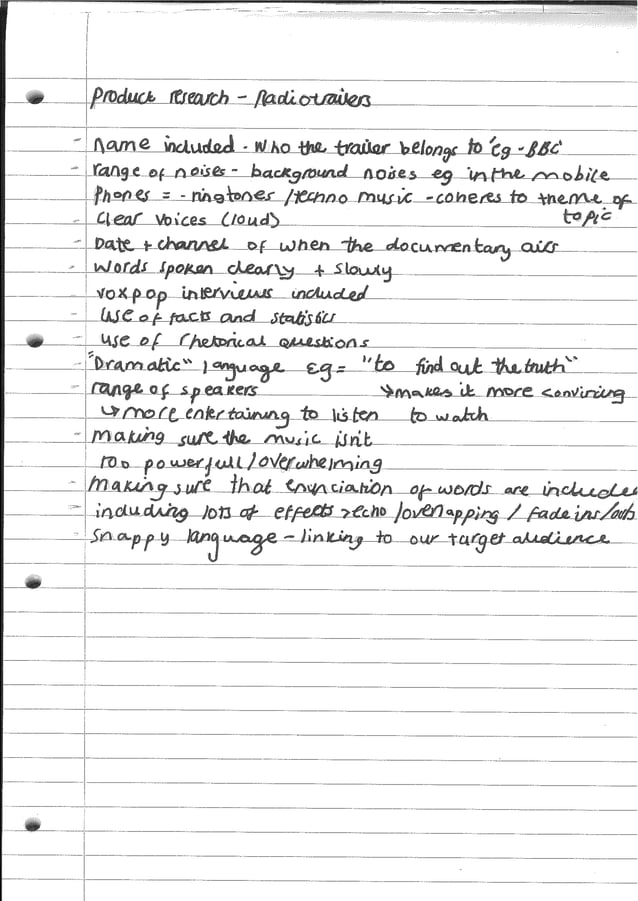 Product research - Radiotrailers
- Name included - Who the trailer belongs to 'eg - BBC'
- range of noises - background noises eg in the mobile
Phones = - ringtones / techno music - coheres to theme of
topic
- Clear voices (loud)
- Date + channel of when the documentary airs
- Words spoken clearly + slowly
- voxpop interviews included
- Use of facts and statistics
- use of rhetorical questions
- "Dramatic" language eg = "to find out the truth"
- range of speakers ↳ makes it more convincing
↳ more entertaining to listen to watch
- Making sure the music isn't
too powerfull / overwhelming
- Making sure that enunciation of words are included
- including lots of effects > echo / overlapping / fade ins / outs
- Snappy language - linking to our target audience